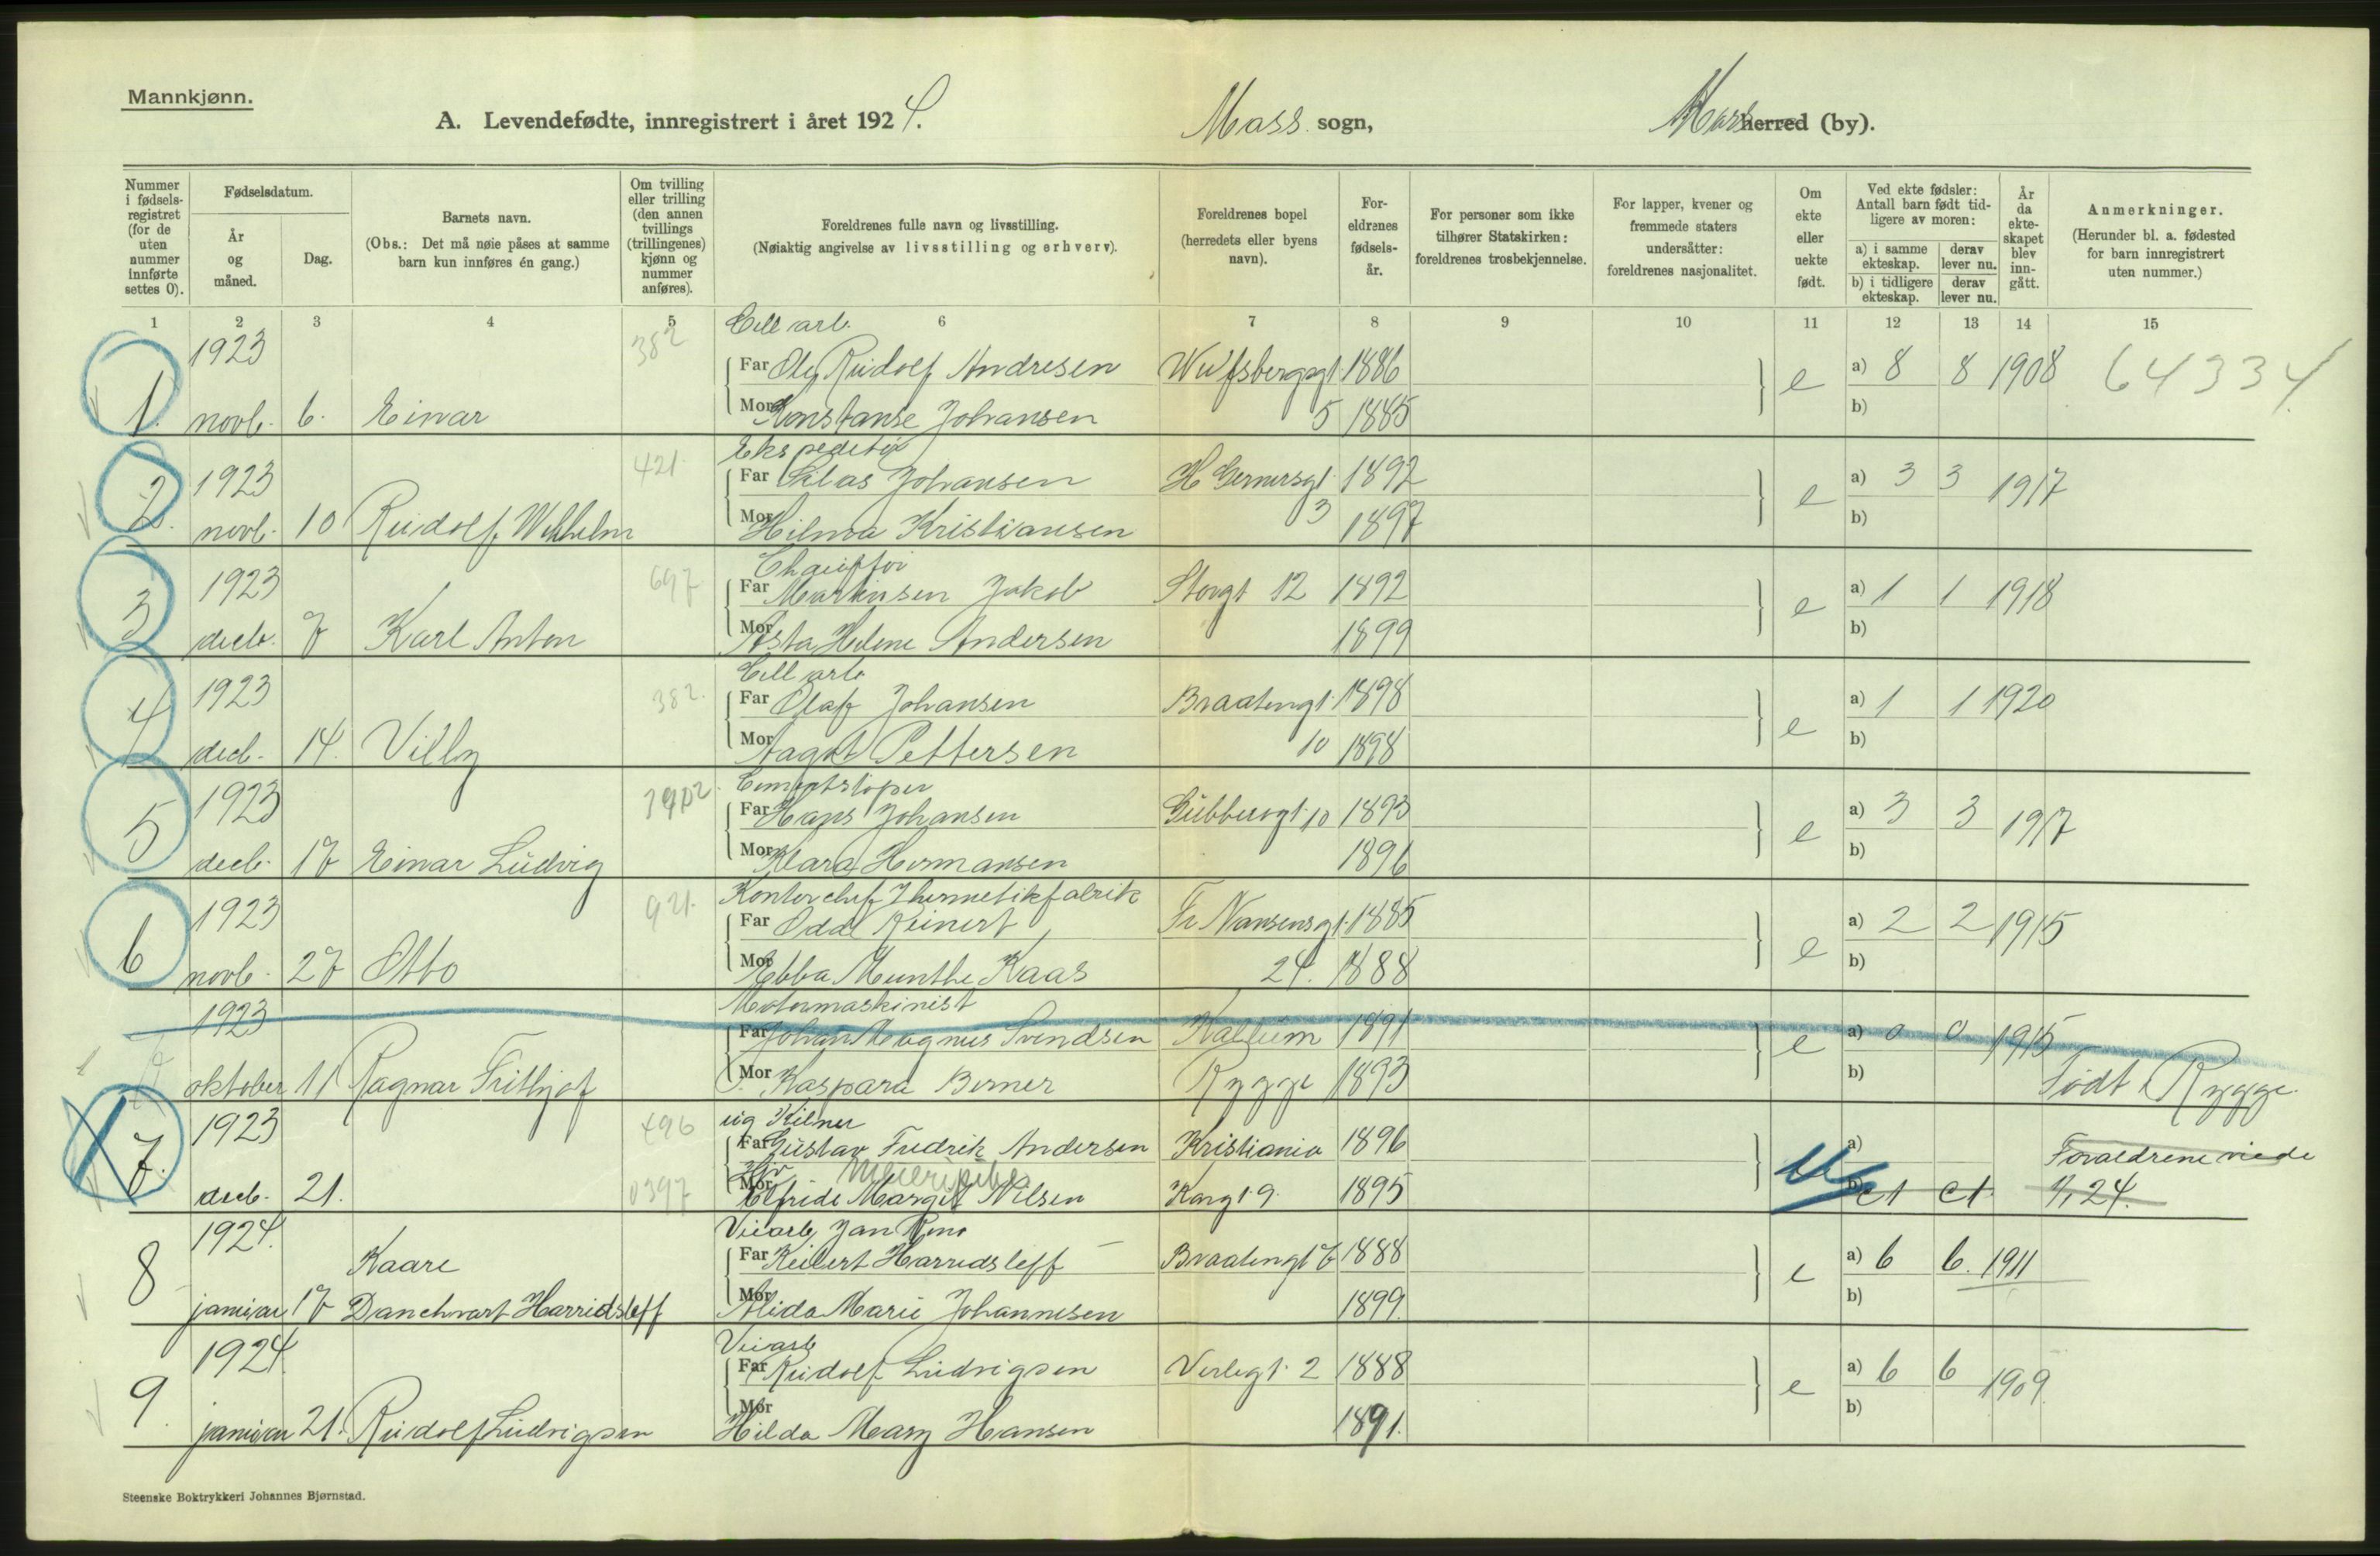 Mannkjønn.
A. Levendefødte, innregistrert i året 1924.
Moss sogn,
Moss herred (by).
Nummer i fødselsregistret (for de uten nummer innførte settes 0).
Fødselsdatum.
År og måned.
Dag.
Barnets navn.
(Obs.: Det må nøie påses at samme barn kun innføres én gang.)
Om tvilling eller trilling (den annen tvillings (trillingenes) kjønn og nummer anføres).
Foreldrenes fulle navn og livsstilling.
(Nøiaktig angivelse av livsstilling og erhverv).
Foreldrenes bopel (herredets eller byens navn).
Foreldrenes fødselsår.
For personer som ikke tilhører Statskirken: foreldrenes trosbekjennelse.
For lapper, kvener og fremmede staters undersåtter: foreldrenes nasjonalitet.
Om ekte eller uekte født.
Ved ekte fødsler: Antall barn født tidligere av moren:
a) i samme ekteskap. derav lever nu.
b) i tidligere ekteskap. derav lever nu.
År da ekteskapet blev inngått.
Anmerkninger.
(Herunder bl. a. fødested for barn innregistrert uten nummer.)
1 2 3 4 5 6 7 8 9 10 11 12 13 14 15
1923 382 Cell arb.
Far Ole Rudolf Andresen Wulfsbergsgt 1886 e a) 8 8 1908 64334
1. novb. 6. Einar Mor Konstanse Johansen 5 1885 b)
1923 421. Ekspeditør
Far Silas Johansen H Gernersgt 1892 e a) 3 3 1917
2. novb. 10 Rudolf Wilhelm Mor Hilma Kristiansen 3 1897 b)
1923 697 Chauffør
Far Martinsen Jakob Storgt 12 1892 e a) 1 1 1918
3 decb. 7 Karl Anton Mor Asta Helene Andersen 1899 b)
1923 382. Cell arb
Far Olaf Johansen Braatengt 1898 e a) 1 1 1920
4 decb. 14. Villy Mor Aagot Pettersen 10 1898 b)
1923 Cementstøper
Far Hans Johansen Gubberogt 10 1893 e a) 3 3 1917
5 decb. 17 Einar Ludvig Mor Klara Hermansen 1896 b)
1923 921. Kontorchef I hermetikfabrik
Far Odd Reinert Fr Nansensgt. 1885 e a) 2 2 1915
6 novb. 27 Otto Mor Ebba Munthe Kaas 24. 1888 b)
1923 Motormaskinist
Far Johan Magnus Svendsen Kallum 1891 e a) 0 0 1915
oktober 11 Ragnar Frithjof Mor Kaspara Berner Rygge 1893 b) Født i Rygge.
1923 496 ug Kelner
Far Gustav Fredrik Andersen Kristiania 1896 a) Foraeldrene viede
7. decb. 21. 0397 Mor Elfride Margit Nilsen Kongt 9. 1895 b) 1/1 24.
1924. Veiarb Jan
Kaare Far Keilert Harridsleff Braatengt 7 1888 e a) 6 6. 1911
8 januar 17 Danchvart Harridsleff Mor Alida Marie Johannesen 1899. b)
1924. Veiarb
Far Rudolf Ludvigsen Verlegt. 2 1888 e a) 6 6 1909
9. januar 21. Rudolf Ludvigsen Mor Hilda Mary Hansen 1891. b)
Steenske Boktrykkeri Johannes Bjørnstad.